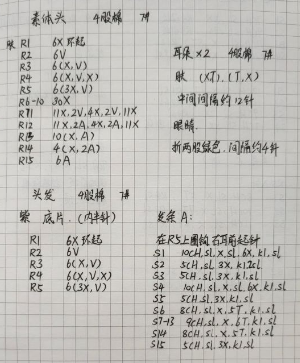 素体头 4股棉 7#
肤 R1 6X 环起
R2 6V
R3 6(X,V)
R4 6(X,V,X)
R5 6(3X,V)
R6-10 30X
R11 11X,2V,4X,2V,11X
R12 11X,2A,4X,2A,11X
R13 10(X,A)
R14 4(X,2A)
R15 6A
耳朵×2 4股棉 7#
肤 (X,T),(T,X)
中间间隔约12针
眼睛
折两股绿色,间隔约4针
头发 4股棉 7#
底片.(内半针)
R1 6X环起
R2 6V
R3 6(X,V)
R4 6(X,V,X)
R5 6(3X,V)
发条A:
在R5上圈的右耳前起针
S1 10CH,sl,X,sl,6X,k1,sl
S2 5CH,sl,3X,k1,2sl
S3 5CH,sl,3X,k1,sl
S4 10CH,sl,X,sl,6X,k1,sl
S5 5CH,sl,3X,k1,sl
S6 8CH,sl,X,5T,k1,sl
S7-13 9CH,sl,X,6T,k1,sl
S14 8CH,sl,X,5T,k1,sl
S15 5CH,sl,3X,k1,sl